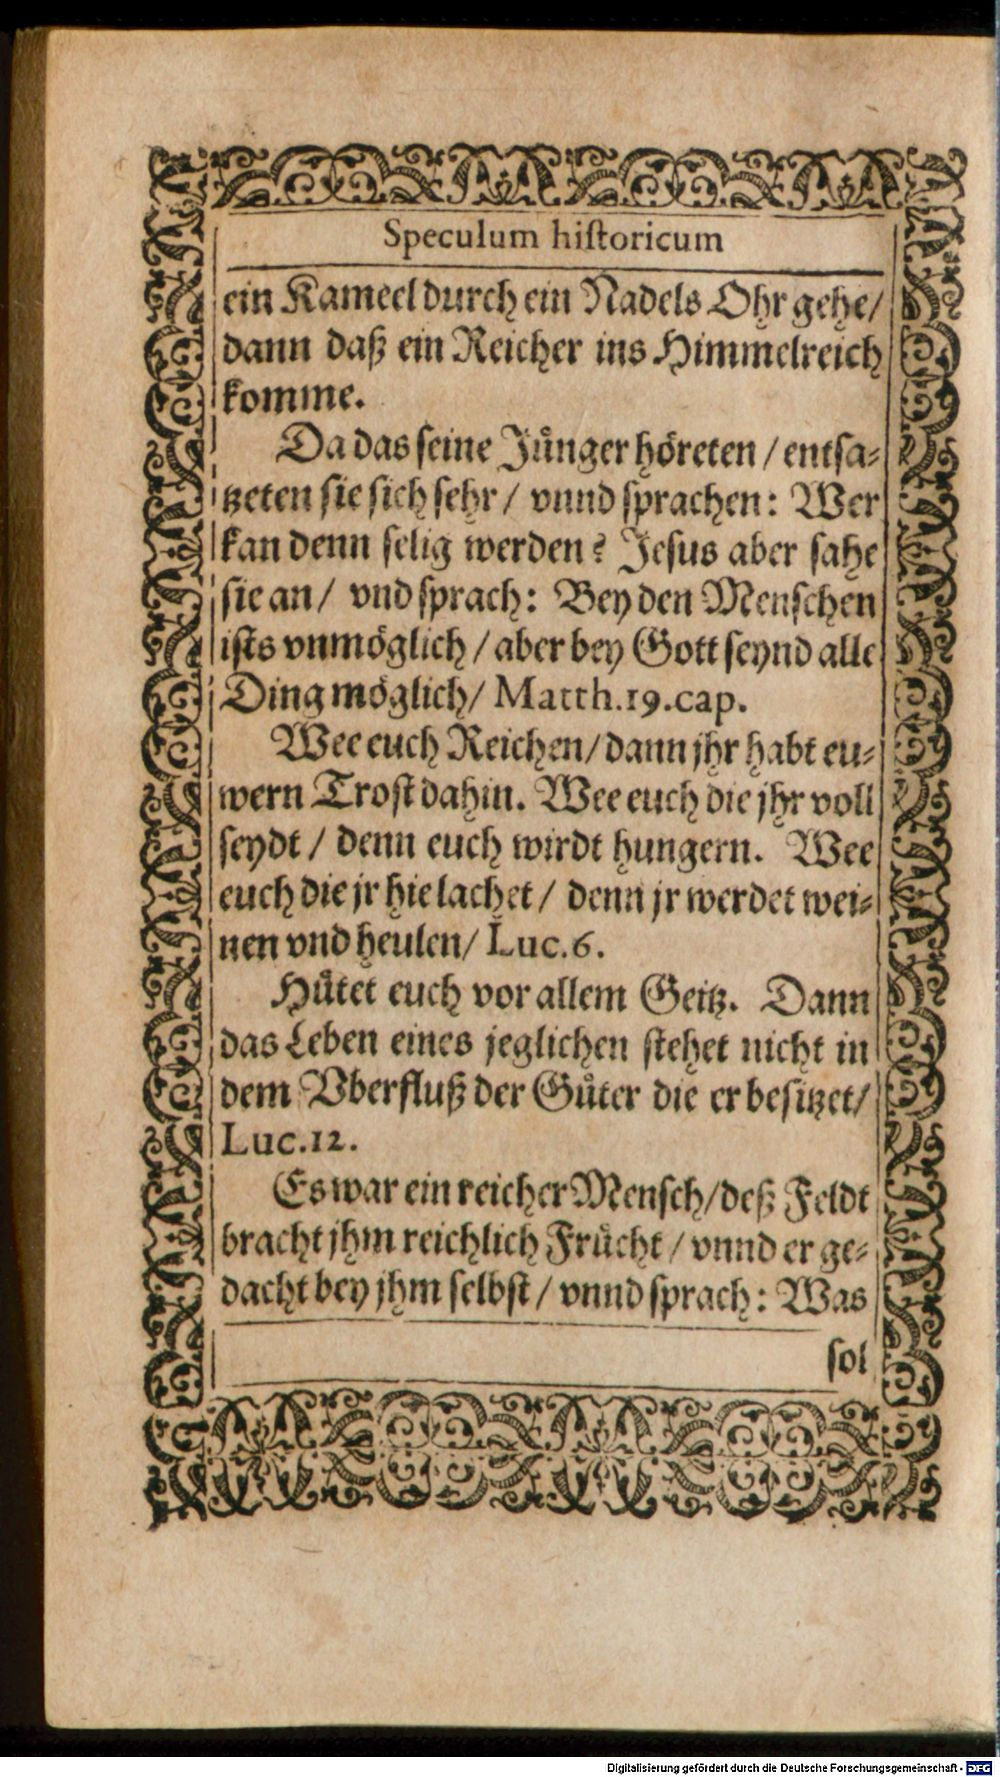 Speculum hiſtoricum
ein Kameel durch ein Nadels Ohr gehe/
dann daß ein Reicher ins Himmelreich
komme.
Da das ſeine Juͤnger hoͤreten / entſa⸗
tzeten ſie ſich ſehr / vnnd ſprachen: Wer
kan denn ſelig werden? Jeſus aber ſahe
ſie an / vnd ſprach: Bey den Menſchen
iſts vnmoͤglich / aber bey Gott ſeynd alle
Ding moͤglich / Matth.19.cap.
Wee euch Reichen / dann jhr habt eu⸗
wern Troſt dahin. Wee euch die jhr voll
ſeydt / denn euch wirdt hungern. Wee
euch die jr hie lachet / denn jr werdet wei⸗
nen vnd heulen / Luc.6.
Huͤtet euch vor allem Geitz. Dann
das Leben eines jeglichen ſtehet nicht in
dem Vberfluß der Guͤter die er beſitzet /
Luc.12.
Es war ein reicher Menſch / deß Feldt
bracht jhm reichlich Fruͤcht / vnnd er ge⸗
dacht bey jhm ſelbſt / vnnd ſprach: Was
ſol
Digitalisierung gefördert durch die Deutsche Forschungsgemeinschaft - DFG